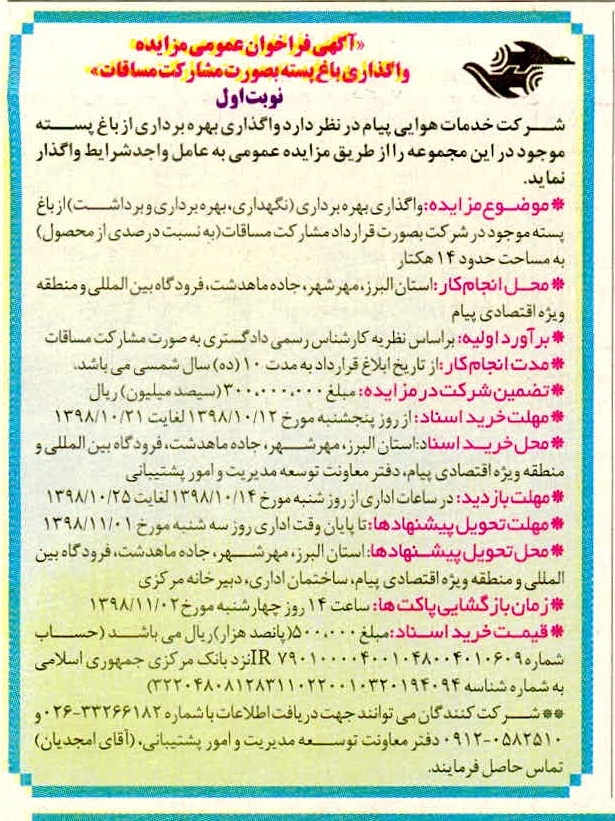 «آگهی فراخوان عمومی مزایده
واگذاری باغ پسته بصورت مشارکت مساقات»
نوبت اول
شرکت خدمات هوایی پیام در نظر دارد واگذاری بهره برداری از باغ پسته
موجود در این مجموعه را از طریق مزایده عمومی به عامل واجد شرایط واگذار
نماید.
*موضوع مزایده: واگذاری بهره برداری (نگهداری، بهره برداری و برداشت) از باغ
پسته موجود در شرکت بصورت قرارداد مشارکت مساقات (به نسبت درصدی از محصول)
به مساحت حدود ۱۴ هکتار
*محل انجام کار: استان البرز، مهرشهر، جاده ماهدشت، فرودگاه بین المللی و منطقه
ویژه اقتصادی پیام
*برآورد اولیه: براساس نظریه کارشناس رسمی دادگستری به صورت مشارکت مساقات
*مدت انجام کار: از تاریخ ابلاغ قرارداد به مدت ۱۰ (ده) سال شمسی می باشد.
*تضمین شرکت در مزایده: مبلغ ۳۰۰،۰۰۰،۰۰۰ (سیصد میلیون) ریال
*مهلت خرید اسناد: از روز پنجشنبه مورخ ۱۳۹۸/۱۰/۱۲ لغایت ۱۳۹۸/۱۰/۲۱
*محل خرید اسناد: استان البرز، مهرشهر، جاده ماهدشت، فرودگاه بین المللی و
منطقه ویژه اقتصادی پیام، دفتر معاونت توسعه مدیریت و امور پشتیبانی
*مهلت بازدید: در ساعات اداری از روز شنبه مورخ ۱۳۹۸/۱۰/۱۴ لغایت ۱۳۹۸/۱۰/۲۵
*مهلت تحویل پیشنهادها: تا پایان وقت اداری روز سه شنبه مورخ ۱۳۹۸/۱۱/۰۱
*محل تحویل پیشنهادها: استان البرز، مهرشهر، جاده ماهدشت، فرودگاه بین
المللی و منطقه ویژه اقتصادی پیام، ساختمان اداری، دبیرخانه مرکزی
*زمان بازگشایی پاکت ها: ساعت ۱۴ روز چهارشنبه مورخ ۱۳۹۸/۱۱/۰۲
*قیمت خرید اسناد: مبلغ ۵۰۰،۰۰۰ (پانصد هزار) ریال می باشد (حساب
شماره IR ۷۹۰۱۰۰۰۰۴۰۰۱۰۴۸۰۰۴۰۱۰۶۰۹ نزد بانک مرکزی جمهوری اسلامی
به شماره شناسه ۳۲۲۰۴۸۰۸۱۲۸۳۱۱۰۲۲۰۰۱۰۳۲۰۱۹۴۰۹۴)
**شرکت کنندگان می توانند جهت دریافت اطلاعات با شماره ۳۳۲۶۶۱۸۲-۰۲۶ و
۰۹۱۲-۰۵۸۲۵۱۰ دفتر معاونت توسعه مدیریت و امور پشتیبانی، (آقای امجدیان)
تماس حاصل فرمایند.